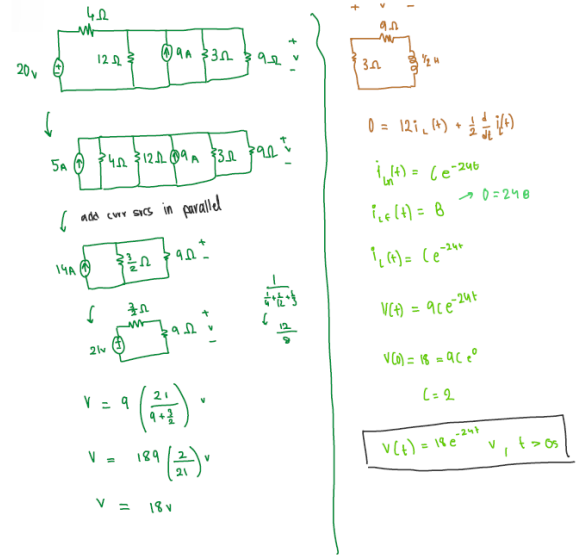 4Ω
20v 12Ω 9A 3Ω 9Ω + v −
5A 4Ω 12Ω 9A 3Ω 9Ω + v −
add curr srcs in parallel
14A 3/2 Ω 9Ω + −
3/2 Ω
21v 9Ω + v −
1/(1/4 + 1/12 + 1/3)
12/8
V = 9 (21/(9 + 3/2)) v
V = 189 (2/21) v
V = 18v
+ v −
9Ω
3Ω 1/2 H
0 = 12i_L(t) + 1/2 d/dt i_L(t)
i_Ln(t) = Ce^-24t
i_Lf(t) = B → 0=24B
i_L(t) = Ce^-24t
V(t) = 9Ce^-24t
V(0) = 18 = 9Ce^0
C = 2
V(t) = 18e^-24t v, t > 0s